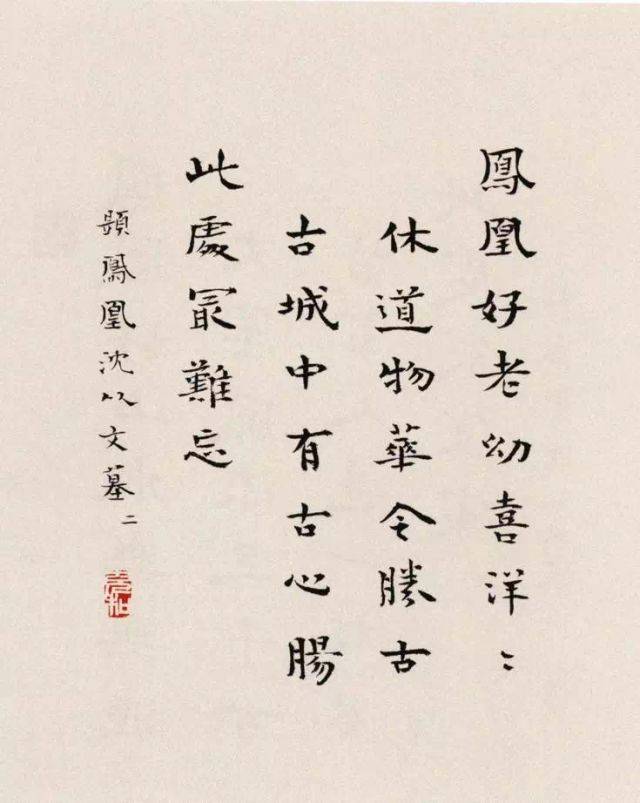 鳳凰好老幼喜洋〻
休道物華今勝古
古城中有古心腸
此處冣難忘
題鳳凰沈从文墓二